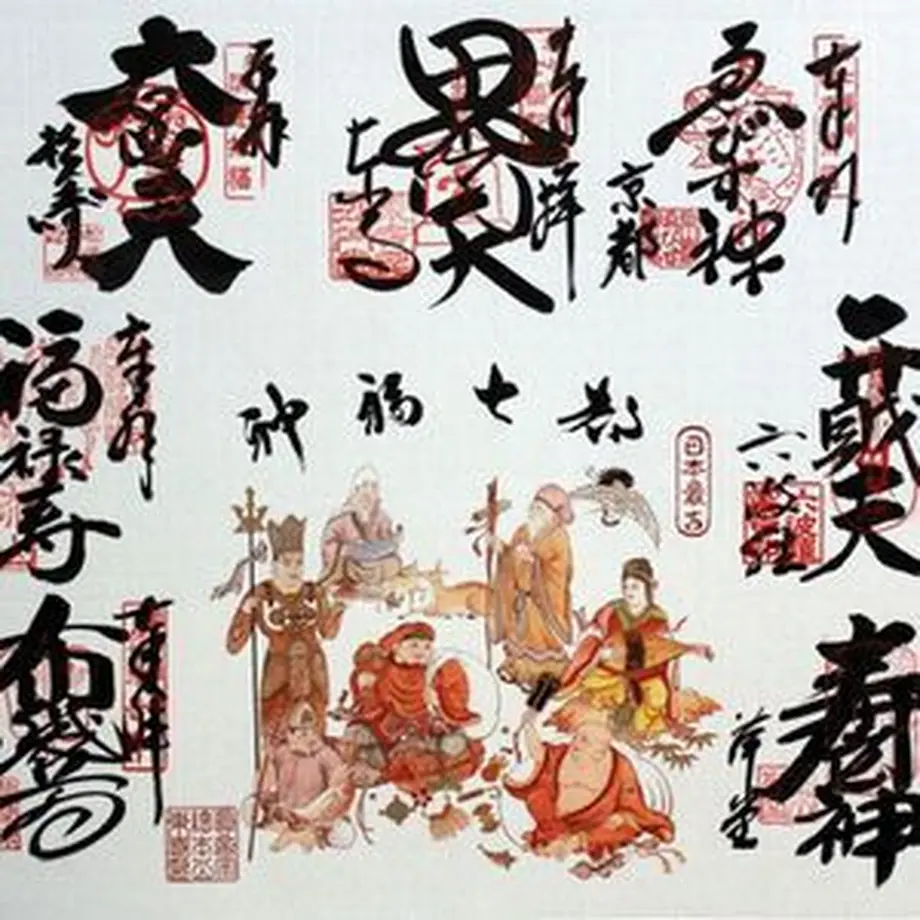 奉拝
ゑびす神
京都
奉拝
毘沙門天
東寺
奉拝
大黒天
弁財天
六波羅
都七福神
日本最古
奉拝
福禄寿
寿老神
革堂
奉拝
布袋尊